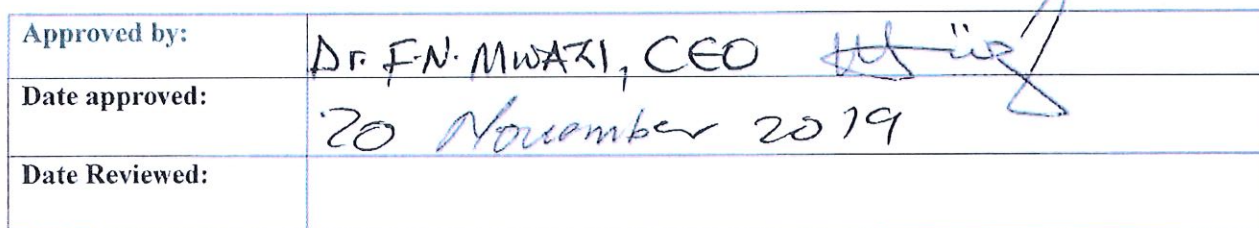 Approved by: Dr. F.N. MWAZI, CEO
Date approved: 20 November 2019
Date Reviewed: